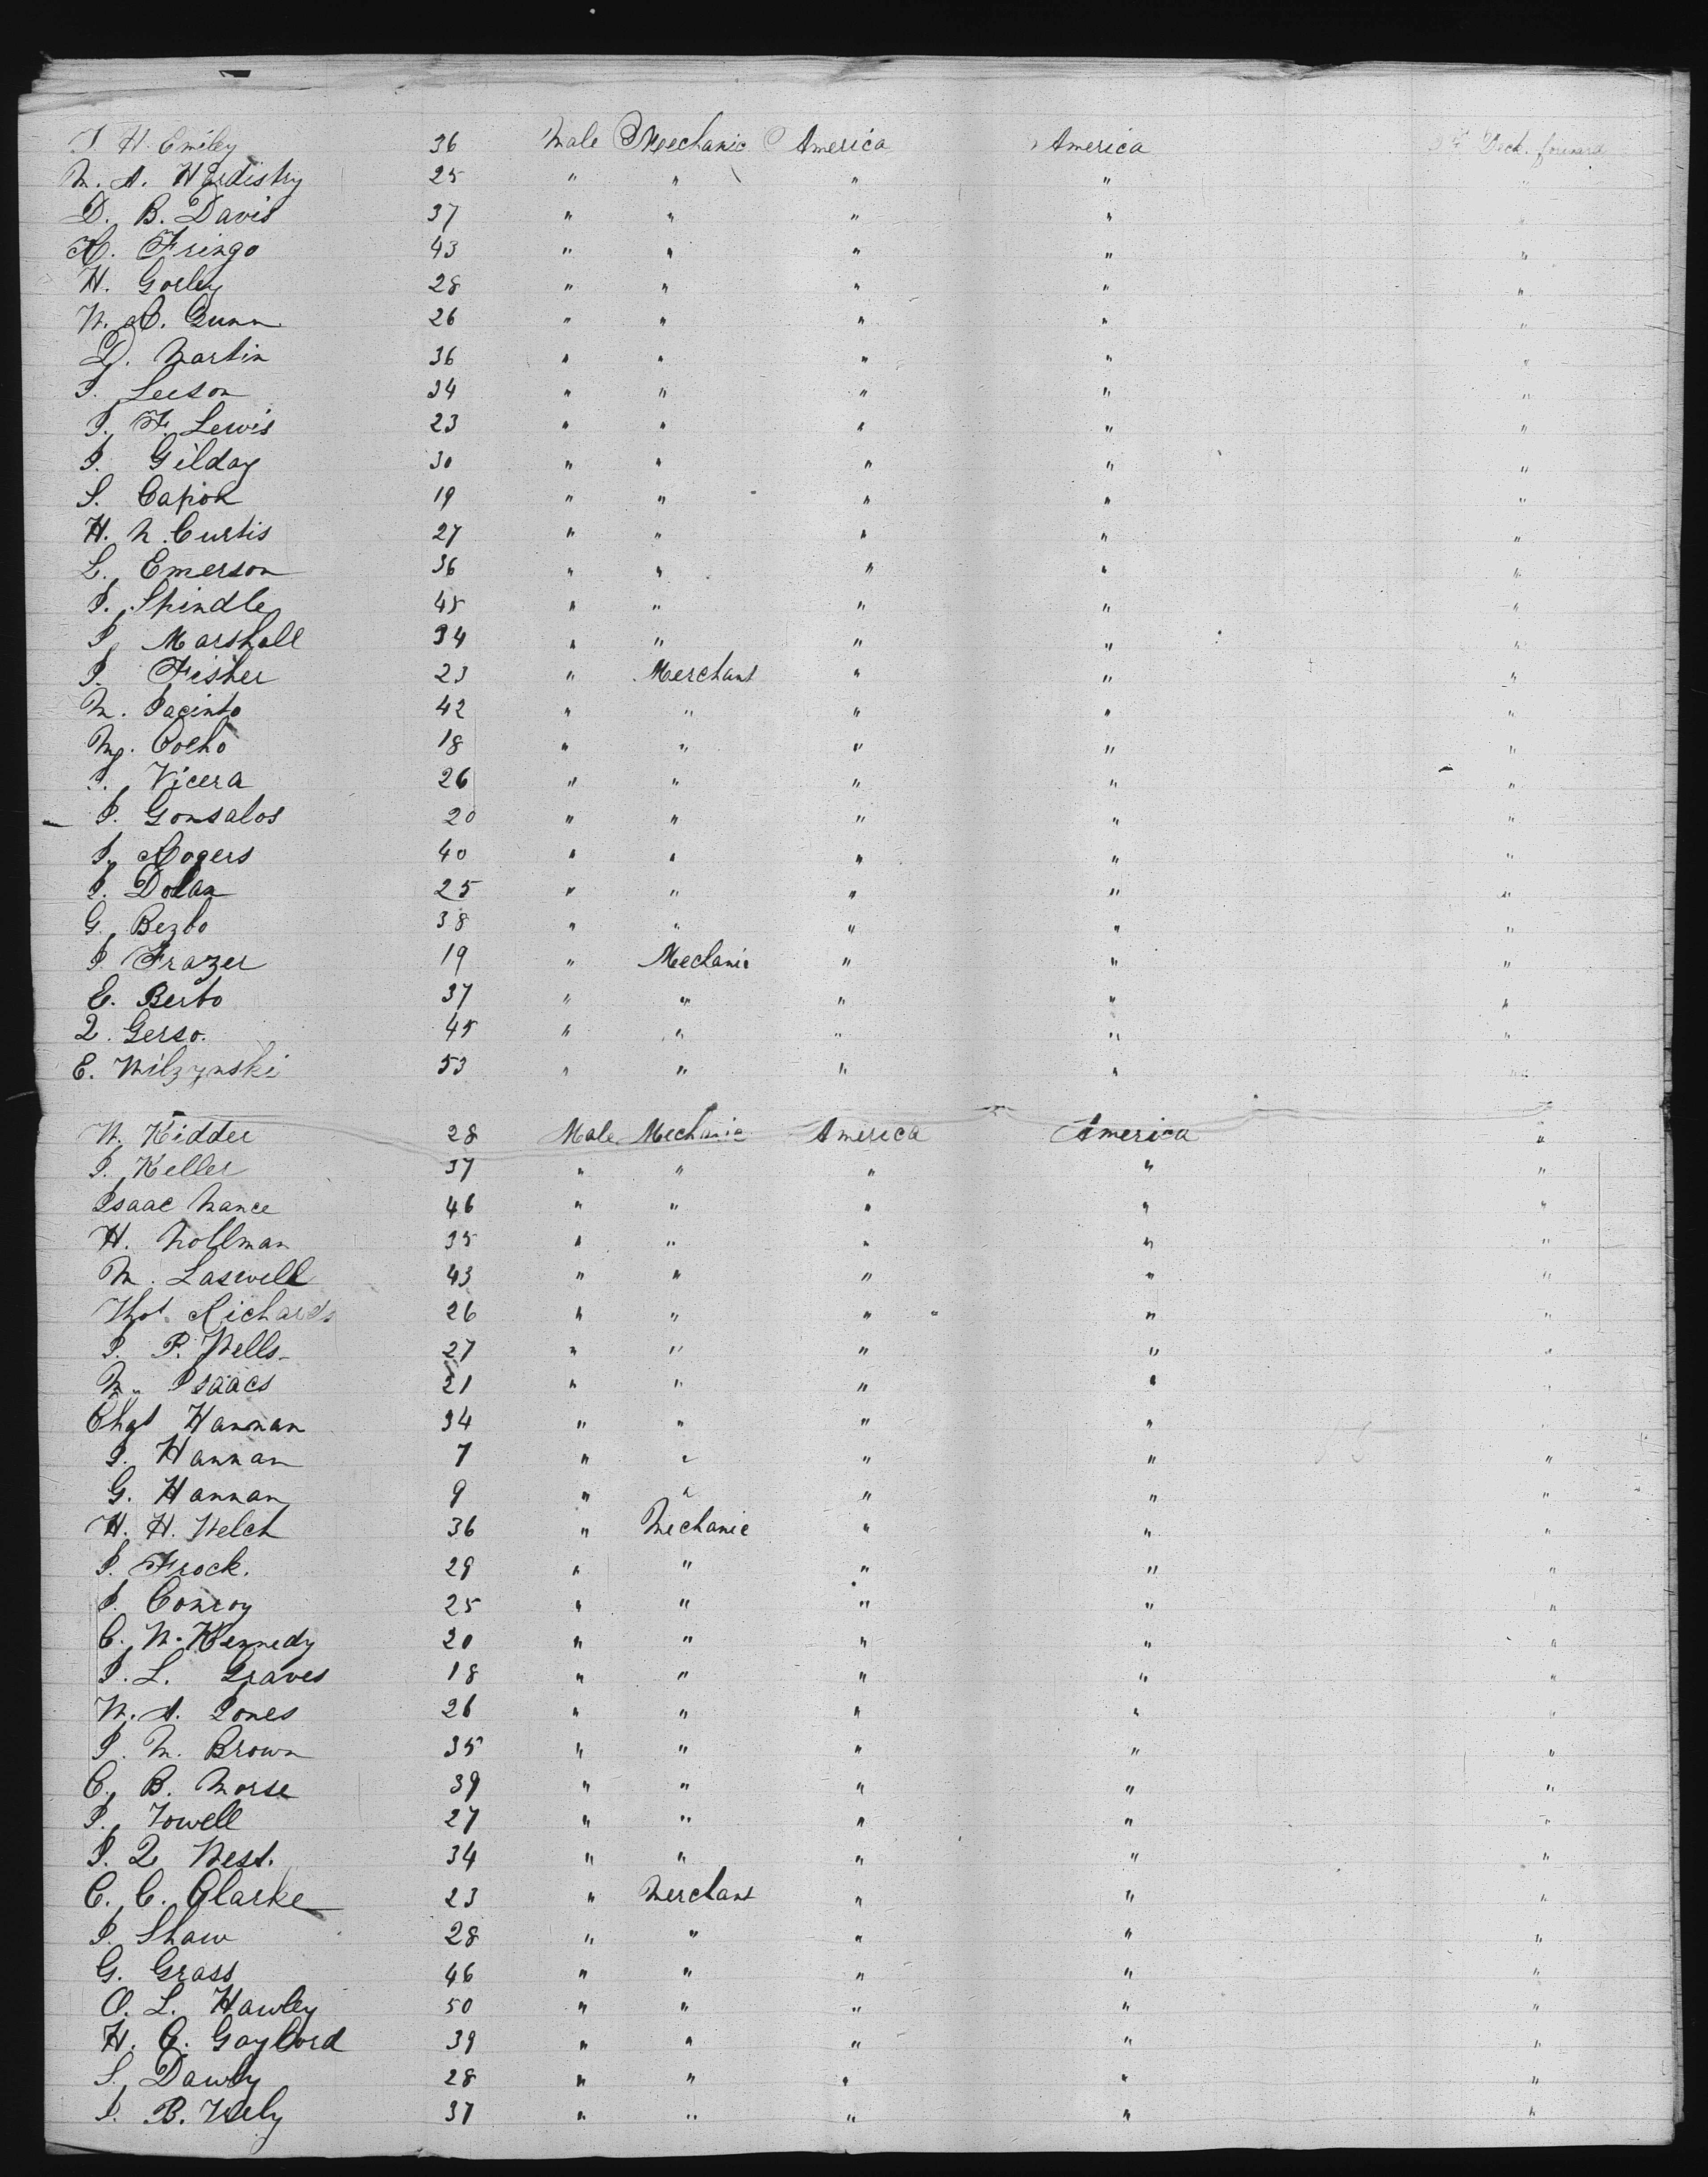 J. H. Emiley 36 Male Mechanic America America 3rd Deck. forward
M. A. Hardistry 25 " " " " "
D. B. Davis 37 " " " " "
H. Fringo 43 " " " " "
H. Gorley 28 " " " " "
W. R. Gunn 26 " " " " "
D. Martin 36 " " " " "
J. Leeson 34 " " " " "
J. F. Lewis 23 " " " " "
J. Gilday 30 " " " " "
S. Capok 19 " " " " "
H. M. Curtis 27 " " " " "
L. Emerson 36 " " " " "
J. Spindle 45 " " " " "
J. Marshall 34 " " " " "
J. Fisher 23 " Merchant " " "
M. Jacinto 42 " " " " "
My. Coelho 18 " " " " "
J. Vicera 26 " " " " "
J. Gonsalos 20 " " " " "
J. Rogers 40 " " " " "
J. Dolan 25 " " " " "
G. Bezbo 38 " " " " "
J. Frazer 19 " Mechanic " " "
E. Berto 37 " " " " "
Q. Gerso. 45 " " " " "
E. Wilzynski 53 " " " " "
W. Kidder 28 Male Mechanic America America "
J. Keller 37 " " " " "
Isaac Nance 46 " " " " "
H. Mollman 35 " " " " "
M. Laswell 43 " " " " "
Thos. Richards 26 " " " " "
J. P. Wells 27 " " " " "
M. Isaacs 21 " " " " "
Chas Hannan 34 " " " "
J. Hannan 7 " " " " "
G. Hannan 9 " " " " "
H. H. Welch 36 " Mechanic " " "
J. Frock. 29 " " " " "
J. Conroy 25 " " " " "
C. W. Kennedy 20 " " " " "
J. L. Graves 18 " " " " "
W. A. Jones 26 " " " " "
J. M. Brown 35 " " " " "
C. B. Morse 39 " " " " "
J. Towell 27 " " " " "
J. Q West. 34 " " " " "
C. C. Clarke 23 " Merchant " " "
J. Shaw 28 " " " " "
G. Grass 46 " " " " "
O. L. Hawley 50 " " " " "
H. C. Gaylord 39 " " " " "
S. Dawby 28 " " " " "
J. B. 37 " " " " "